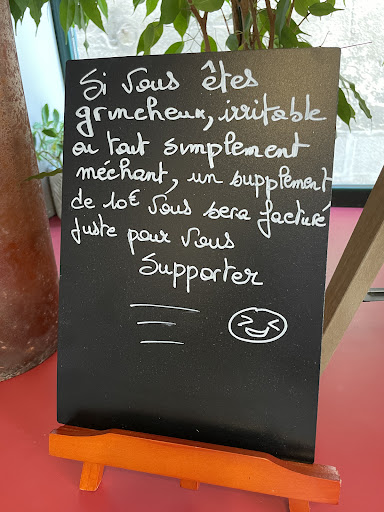 Si vous êtes
grincheux, irritable
ou tout simplement
méchant, un supplément
de 10€ vous sera facturé
juste pour vous
Supporter